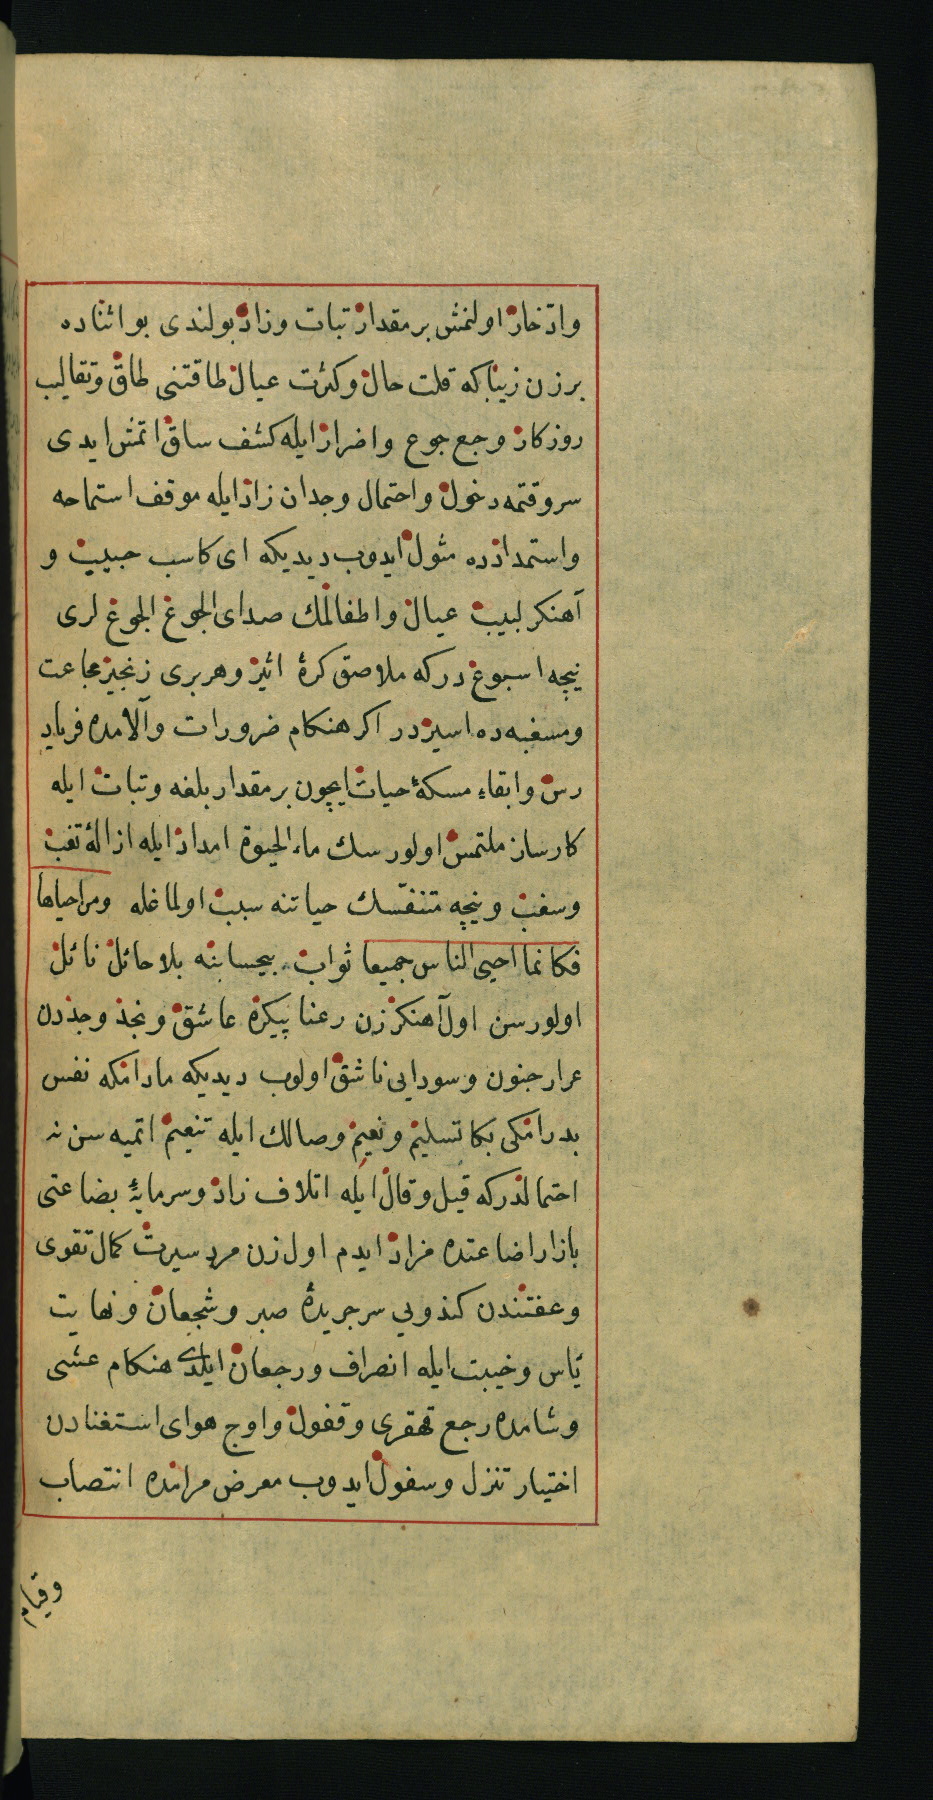 وادّخار اولنمش بر مقدار تبات وزاد بولندی بو اثناده
بر زن زیبا که قلت حال وکثرت عیال طاقتنی طاق وتقالیب
روزکار وجع جوع واضرار ایله کشف ساق اتمش ایدی
سروقتمه دخول واحتمال وجدان زاد ایله موقف استماحه
واستمدادده مثول ایدوب دیدیکه ای کاسب حبیب و
آهنکر لبیب عیال واطفالمك صدای الجوع الجوع لری
نیچه اسبوع درکه ملاصق کرهٔ اثیر وهر بری زنجیر مجاعت
ومسغبه ده اسیردر اکر هنکام ضرورات وآلامده فریاد
رس وابقاء مسکهٔ حیات ایچون بر مقدار بلغه وتبات ایله
کارساز ملتمس اولورسك ماء الحیوة امداد ایله ازالهٔ تعب
وسغب ونیچه متنفّسك حیاتنه سبب اولماغله ومن احیاها
فکانما احیی الناس جمیعا ثواب بیحسابنه بلا حائل نائل
اولورسن اول آهنکر زن رعنا پیکره عاشق ونجد وجددن
عرار جنون وسودایی ناشق اولوب دیدیکه مادامکه نفس
بدرامکی بکا تسلیم ونعیم وصالك ایله تنعیم اتمیه سن نه
احتمالدرکه قیل وقال ایله اتلاف زاد وسرمایهٔ بضاعتی
بازار اضاعتده مزاد ایدم اول زن مرد سیرت کمال تقوی
وعفتندن کندویی سر جریدهٔ صبر وشجعان ونهایت
یٔاس وخیبت ایله انصراف ورجعان ایلدی هنکام عشی
وشامده رجع قهقری وقفول واوج هوای استغنادن
اختیار تنزل وسفول ایدوب معرض مرامده انتصاب
وقیام